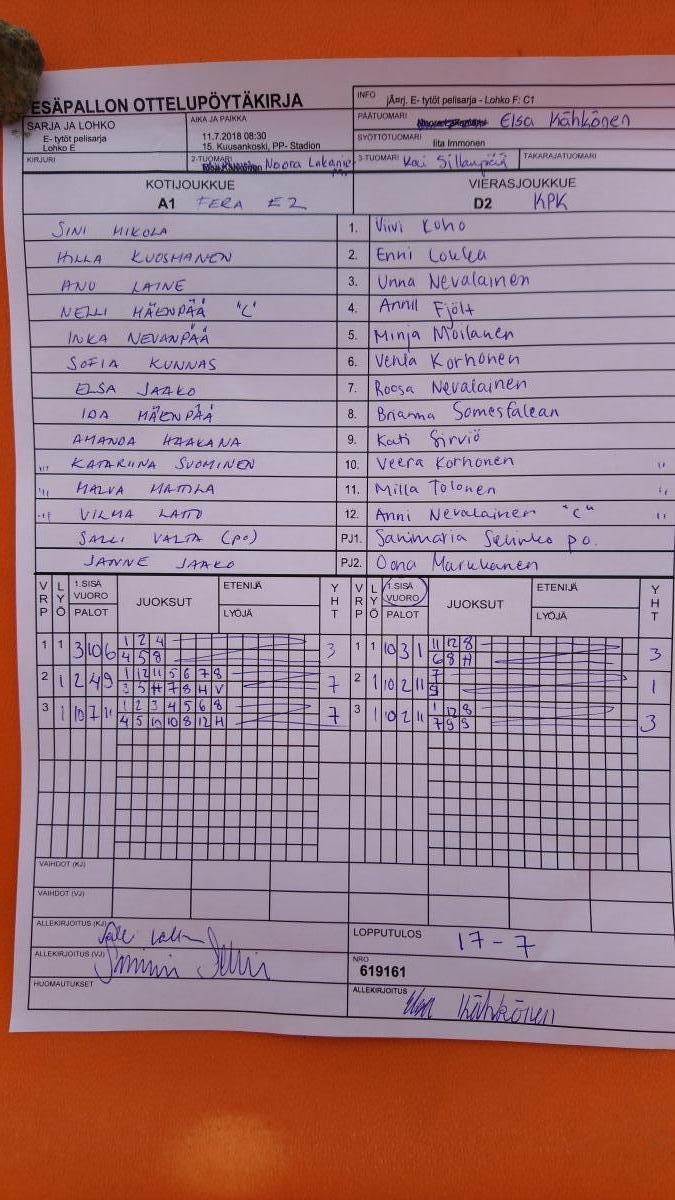 ESÄPALLON OTTELUPÖYTÄKIRJA
INFO jÃ¤rj. E- tytöt pelisarja - Lohko F: C1
SARJA JA LOHKO
E- tytöt pelisarja
Lohko E
AIKA JA PAIKKA
11.7.2018 08:30
15. Kuusankoski, PP- Stadion
PÄÄTUOMARI Elsa Kähkönen
SYÖTTÖTUOMARI
Iita Immonen
KIRJURI 2-TUOMARI Noora 3-TUOMARI TAKARAJATUOMARI
KOTIJOUKKUE VIERASJOUKKUE
A1 FERA E2 D2 KPK
SINI MIKOLA 1. Viivi Koho
HILLA KUOSMANEN 2. Enni Loukka
ANU LAINE 3. Unna Nevalainen
NELLI MÄENPÄÄ "C" 4. Fjölt
INKA NEVANPÄÄ 5. Minja Moilanen
SOFIA KUNNAS 6. Venla Korhonen
ELSA JAAKO 7. Roosa Nevalainen
IDA MÄENPÄÄ 8. Brianna Somesfalean
AMANDA HAAKANA 9. Kati Sirviö
KATARIINA SUOMINEN 10. Veera Korhonen
MALVA MATTILA 11. Milla Tolonen
VILMA LATTO 12. Anni Nevalainen "C"
SALLI VALTA (PO) PJ1. Sanimaria po.
JANNE JAAKO PJ2. Oona Marukanen
VRP LYÖ 1.SISÄ VUORO PALOT JUOKSUT ETENIJÄ LYÖJÄ YHT VRP LYÖ 1.SISÄ VUORO PALOT JUOKSUT ETENIJÄ LYÖJÄ YHT
1 1 3 10 6 1 2 4 3 1 1 10 3 1 11 12 8 3
4 5 8 6 8 H
2 1 2 4 9 1 12 11 5 6 7 8 7 2 1 10 2 11 7 1
3 5 H 7 8 H V 9
3 1 10 7 11 1 2 3 4 5 6 8 7 3 1 10 2 11 1 12 8 3
4 5 10 10 8 12 H 7 9 9
VAIHDOT (KJ)
VAIHDOT (VJ)
ALLEKIRJOITUS (KJ)
LOPPUTULOS 17 - 7
ALLEKIRJOITUS (VJ)
NRO
619161
HUOMAUTUKSET
ALLEKIRJOITUS Elsa Kähkönen